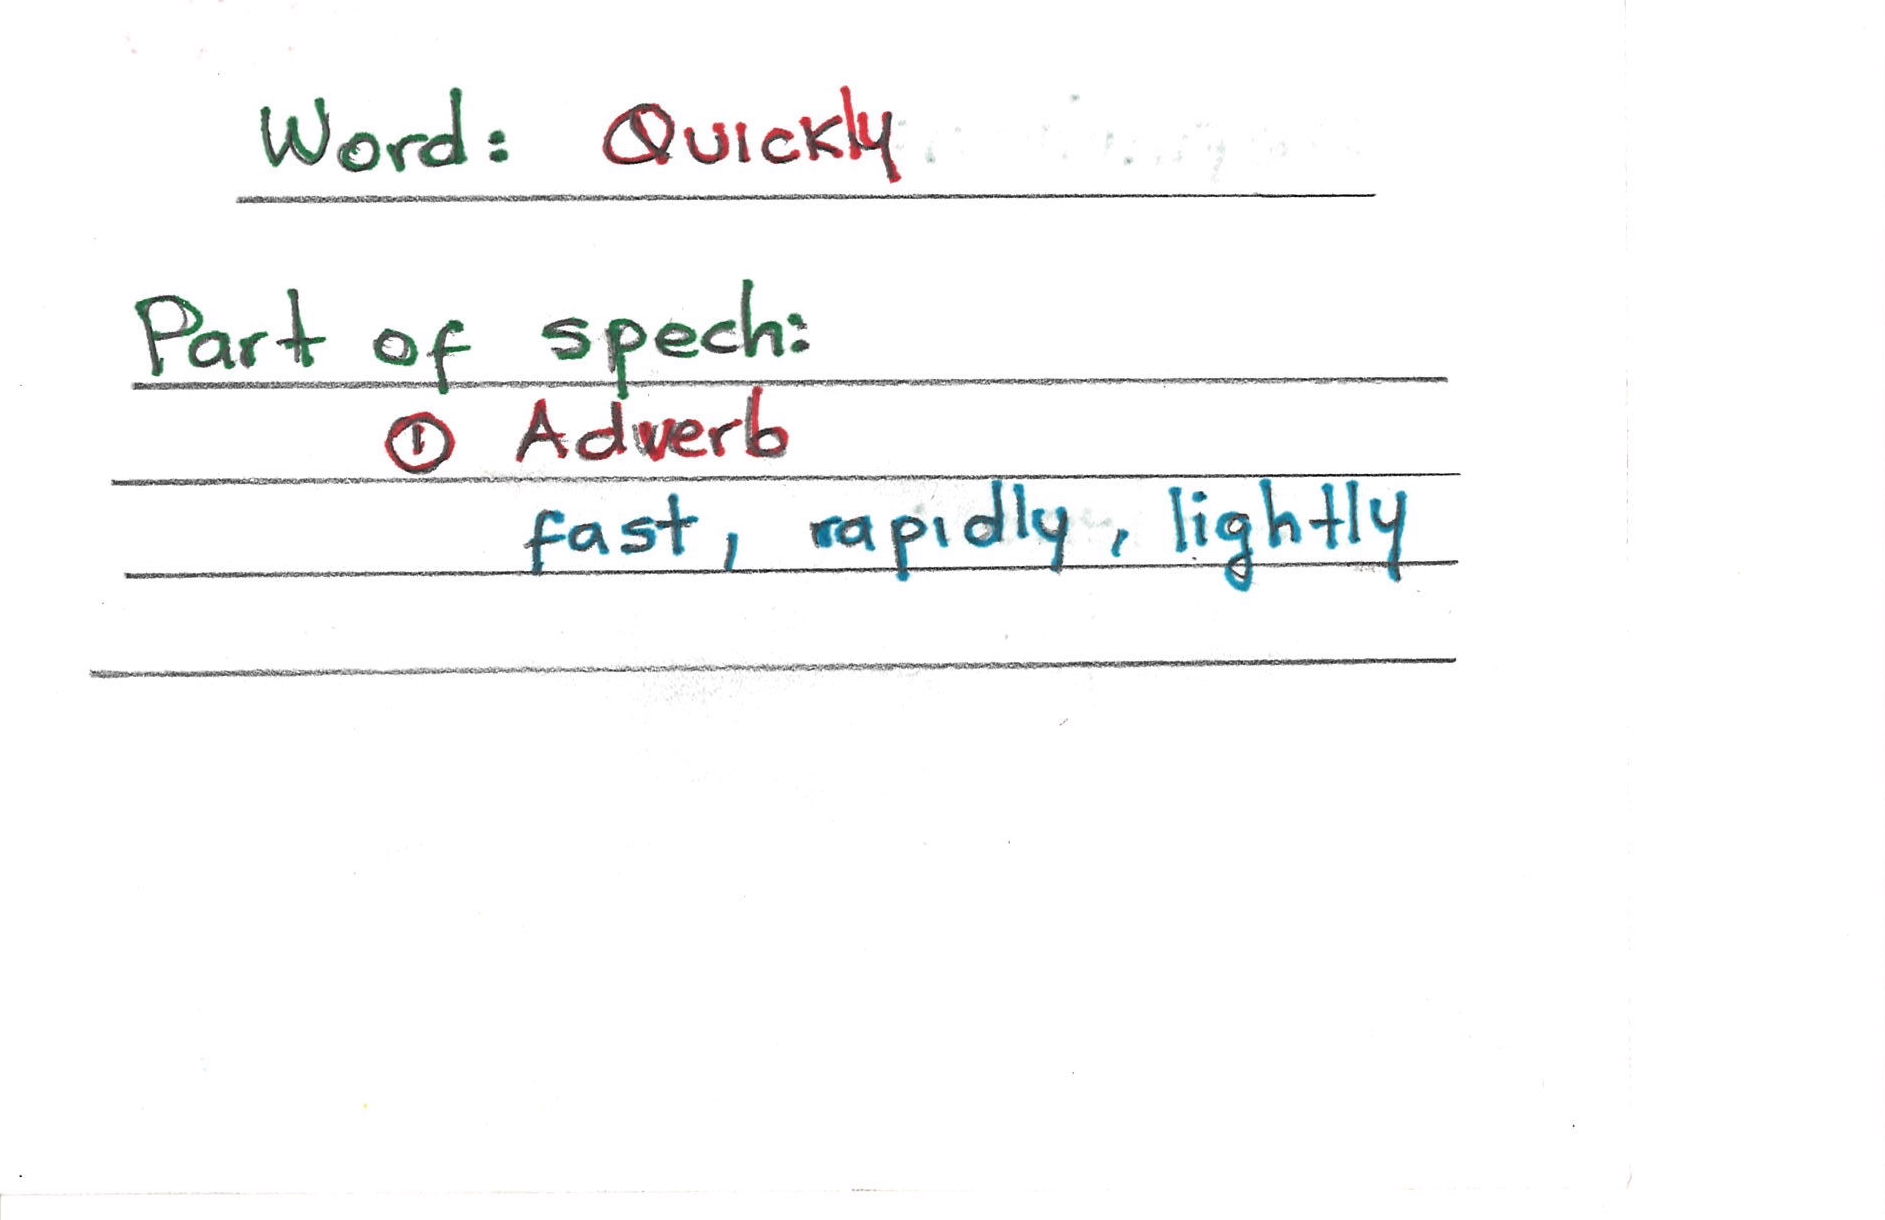 Word: Quickly
Part of spech:
① Adverb
fast, rapidly, lightly